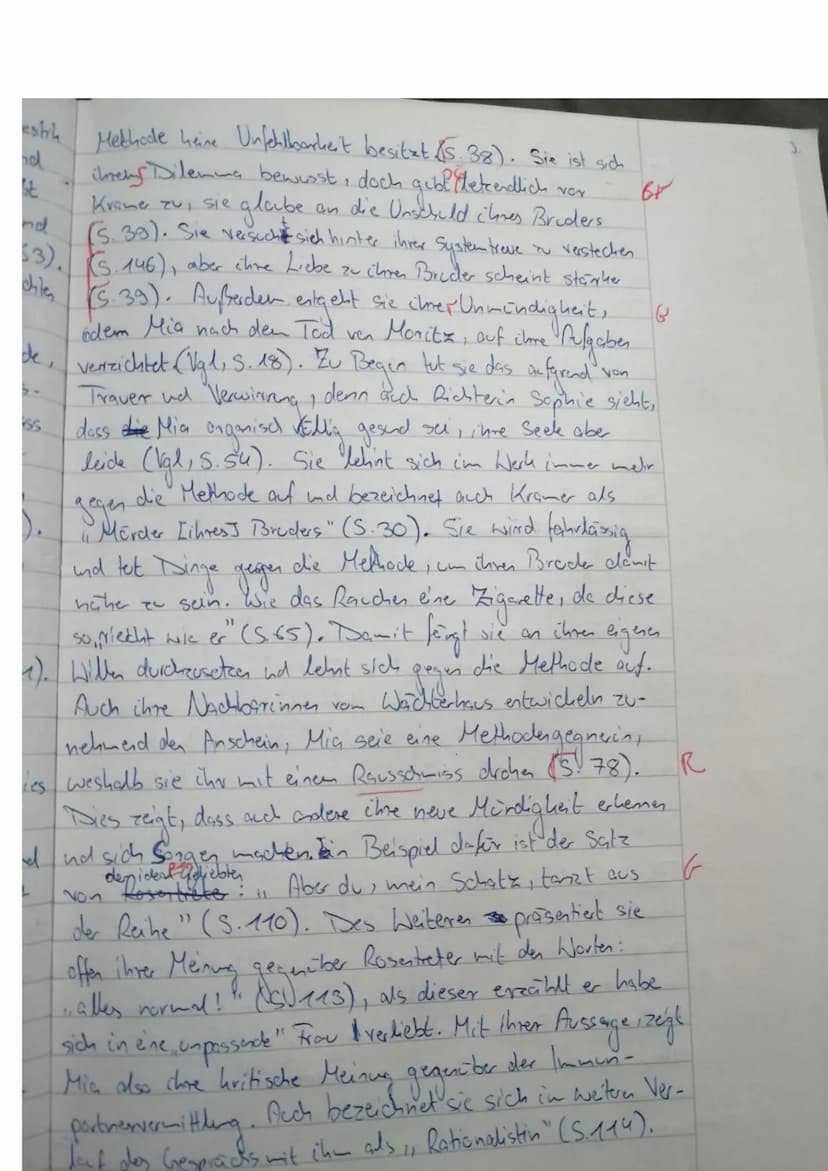 estrh
nd
st
nd
53).
chtes
de,
s-
iss
).
1).
ies
d
3.
Methode keine Unfehlbarkeit besitzt (S. 38). Sie ist sich
ihrem Dilemma bewusst, doch gibt letzendlich vor
Gr
Kramer zu, sie glaube an die Unschuld ihres Bruders
(S. 39). Sie versucht sich hinter ihrer Systemtreue zu verstecken
(S. 146), aber ihre Liebe zu ihrem Bruder scheint stärker
(S. 39). Außerdem entgeht sie ihrer Unmündigkeit,
G
indem Mia nach dem Tod von Moritz, auf ihre Aufgaben
verzichtet (Vgl, S. 18). Zu Beginn tut sie das aufgrund von
Trauer und Verwirrung, denn auch Richterin Sophie sieht,
dass die Mia organisch völlig gesund sei, ihre Seele aber
leide (Vgl, S. 54). Sie lehnt sich im Werk immer mehr
gegen die Methode auf und bezeichnet auch Kramer als
„Mörder [ihres] Bruders" (S. 30). Sie wird fahrlässig
und tut Dinge gegen die Methode, um ihren Bruder damit
näher zu sein. Wie das Rauchen eine Zigarette, da diese
so „riecht wie er" (S. 65). Damit fängt sie an ihren eigenen
Willen durchzusetzen und lehnt sich gegen die Methode auf.
Auch ihre Nachbarinnen vom Wächterhaus entwickeln zu-
nehmend den Anschein, Mia seie eine Methodengegnerin,
weshalb sie ihr mit einem Rausschmiss drohen (S. 78).
R
Dies zeigt, dass auch andere ihre neue Mündigkeit erkennen
und sich Sorgen machen. Ein Beispiel dafür ist der Satz
der ideal Geliebten
G
von Rosentreter: „Aber du, mein Schatz, tanzt aus
der Reihe" (S. 110). Des Weiteren präsentiert sie
offen ihrer Meinung gegenüber Rosentreter mit den Worten:
„alles normal!" (S. 113), als dieser erzählt er habe
sich in eine „unpassende" Frau verliebt. Mit ihrer Aussage, zeigt
Mia also ihre kritische Meinung gegenüber der Immun-
partnervermittlung. Auch bezeichnet sie sich im weitern Ver-
lauf des Gesprächs mit ihm als „Rationalistin" (S. 114).